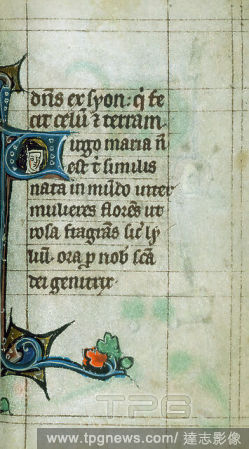 dn̄s ex syon: q̇ fe
cit celū ⁊ terram
Virgo maria n̄
est t̄ similis
nata in mūdo inter
mulieres florēs ut
rosa fragrās sic̄ ly
liū. ora p nob̄ sc̄a
dei genitrix.
TPG
www.tpgnews.com/ 達志影像